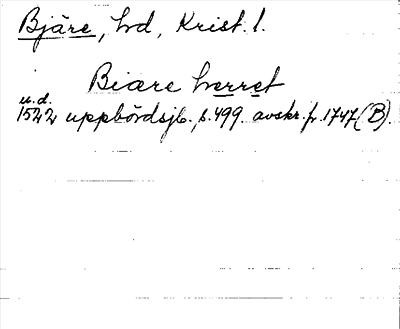 Bjäre, hd, Krist. l.
Biare herret
u.d.
1522 uppbördsjb. s. 499. avskr. fr. 1747 (B).